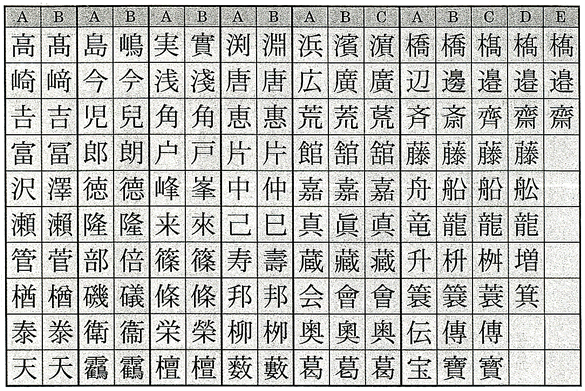 A B A B A B A B A B C A B C D E
高 髙 島 嶋 実 實 渕 淵 浜 濱 濵 橋 橋 槗 槗 槗
崎 﨑 今 今 浅 淺 唐 唐 広 廣 廣 辺 邊 邉 邉 邉
𠮷 吉 児 兒 角 角 恵 惠 荒 荒 荒 斉 斎 齊 齋 齋
富 冨 郎 朗 户 戸 片 片 館 舘 舘 藤 藤 藤 藤
沢 澤 徳 德 峰 峯 中 仲 嘉 嘉 嘉 舟 船 船 舩
瀬 瀨 隆 隆 来 來 己 巳 真 眞 真 竜 龍 龍 龍
管 菅 部 倍 篠 篠 寿 壽 蔵 藏 藏 升 枡 桝 増
楢 楢 磯 礒 條 條 邦 邦 会 會 會 簑 簔 蓑 箕
泰 泰 衛 衞 栄 榮 柳 栁 奥 奧 奥 伝 傳 傳
天 天 靍 靏 檀 檀 薮 藪 葛 葛 葛 宝 寶 寳